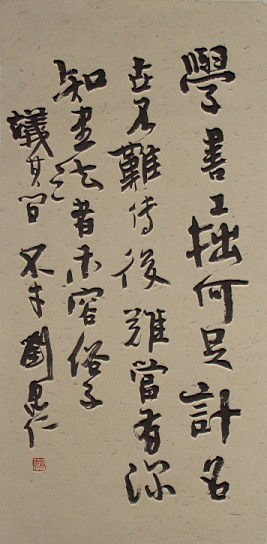 學書工拙何足計名
世不難傳後難當有深
知書法者未容俗子
議其間 劉